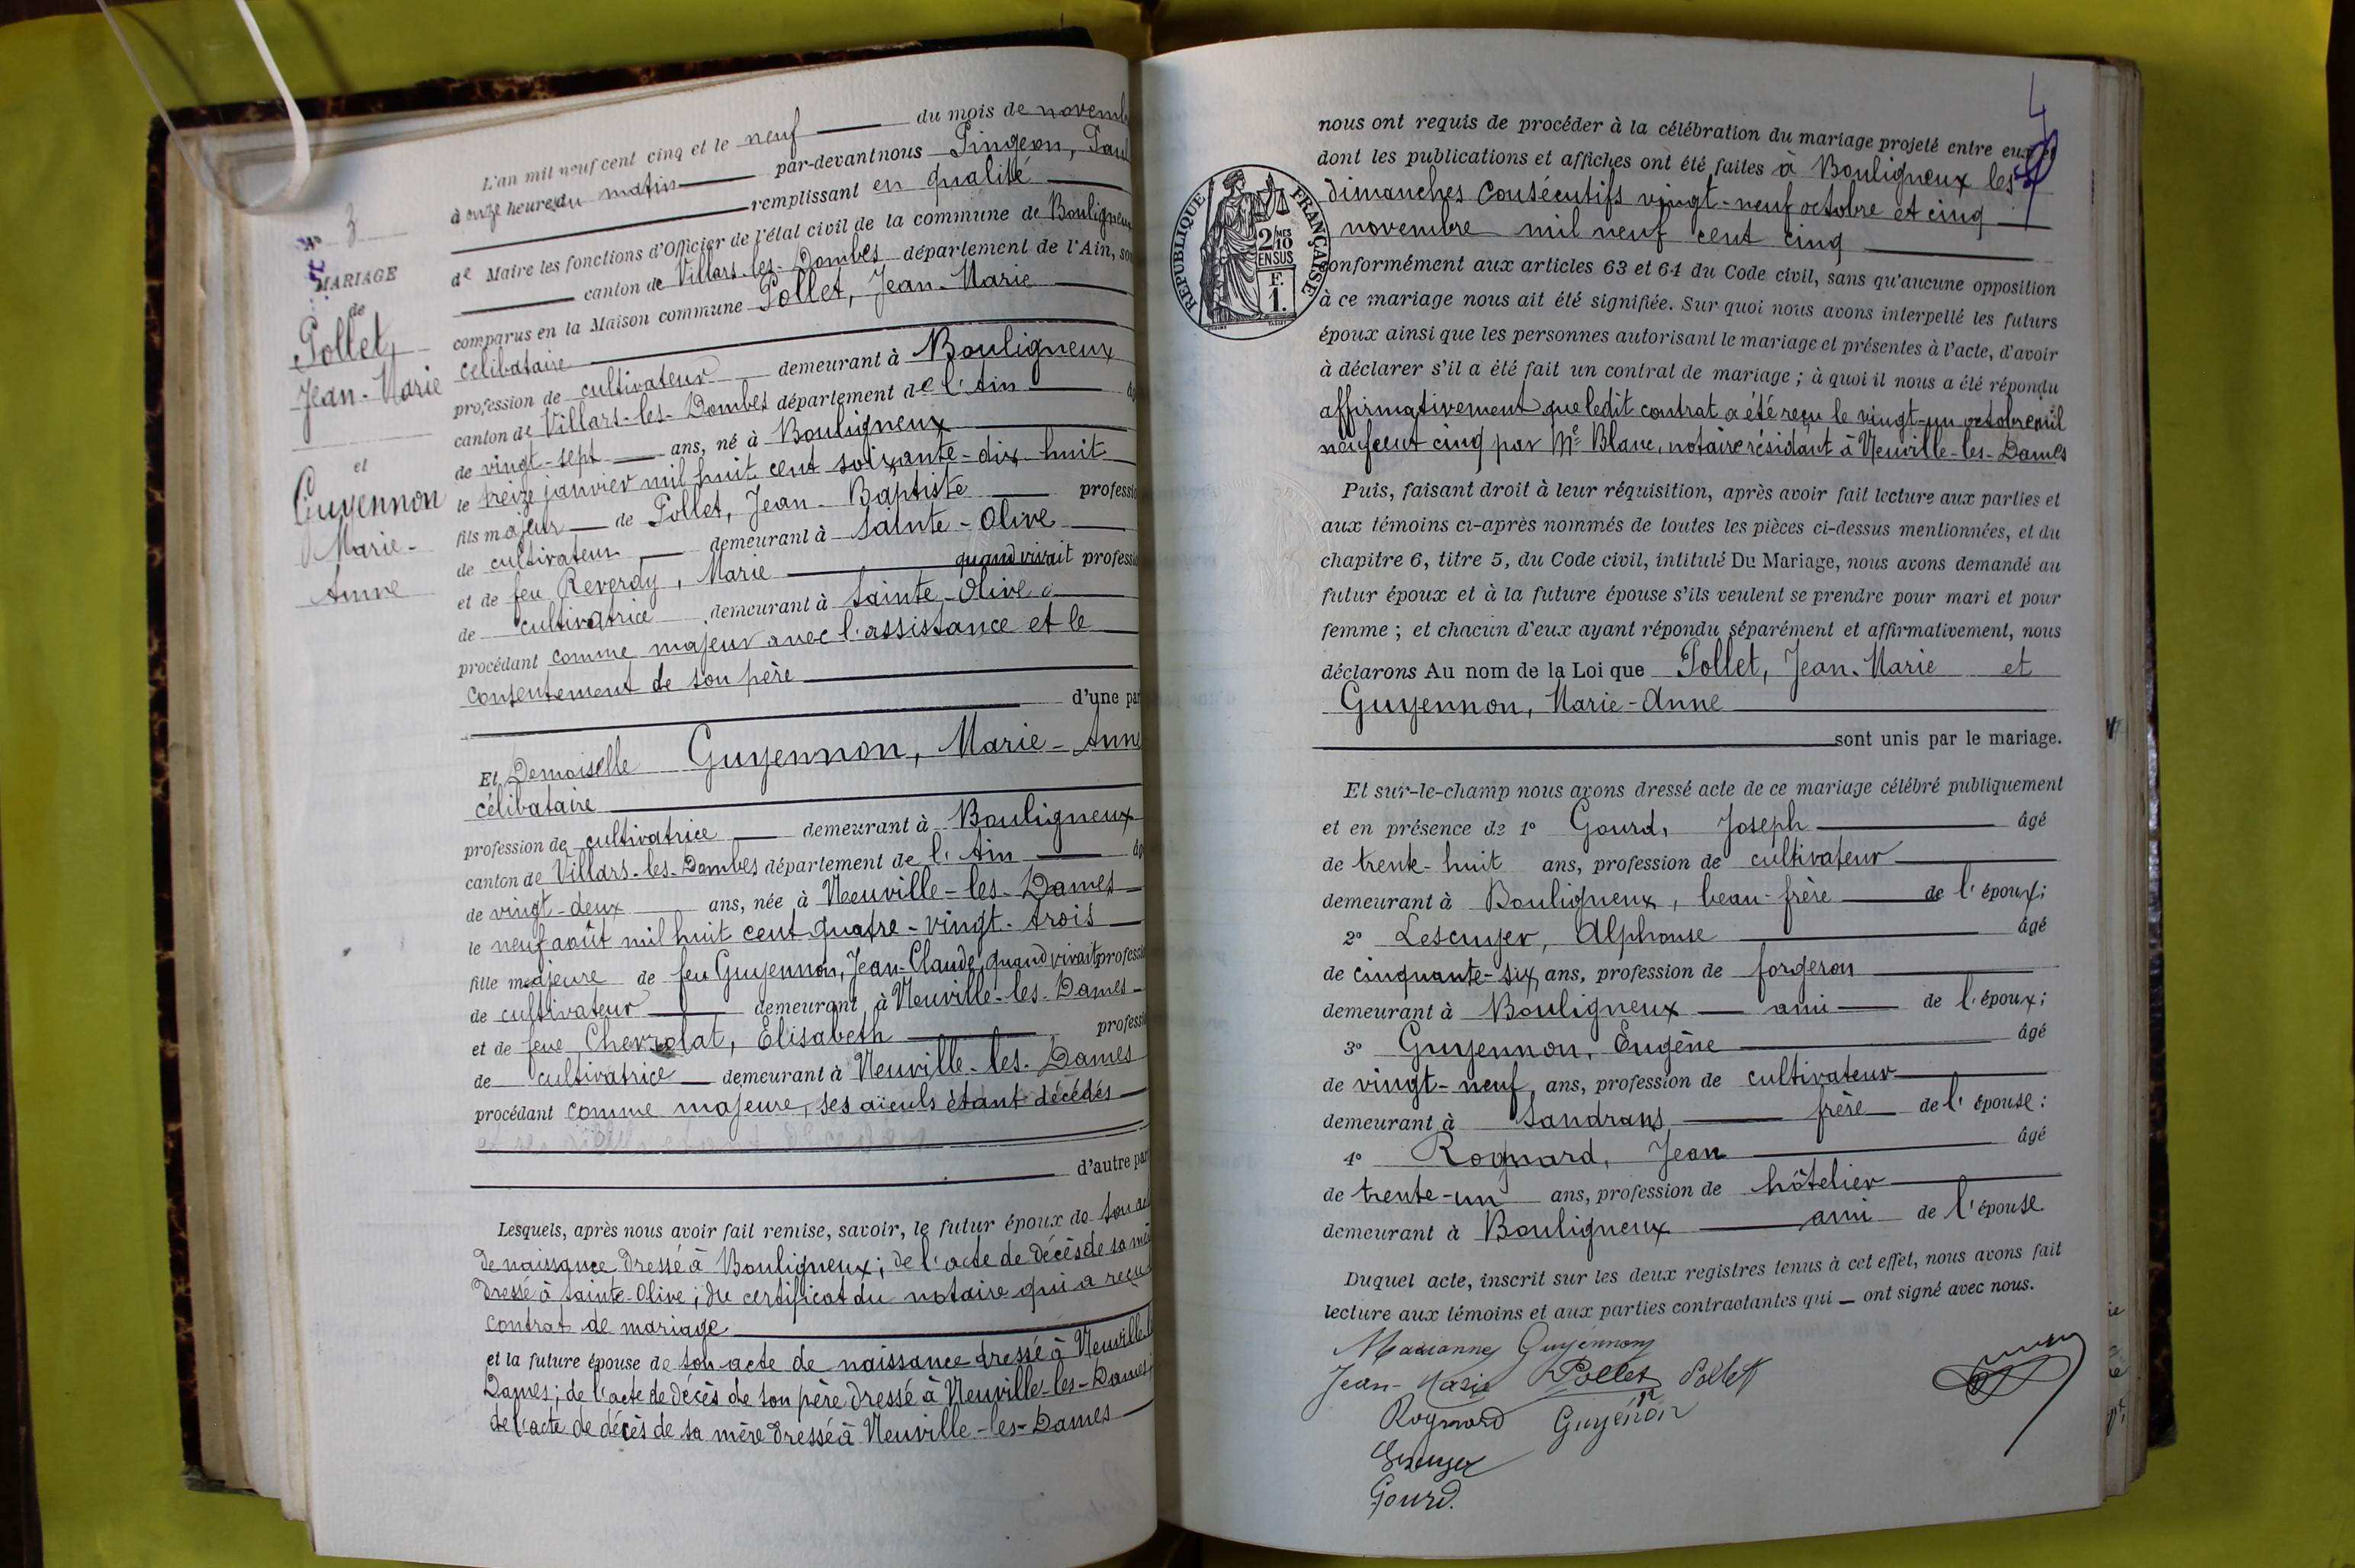 L'an mil neuf cent cinq et le neuf du mois de novemb
à onze heures du matin par-devant nous Pingeon, Paul
remplissant en qualité
de Maire les fonctions d'Officier de l'état civil de la commune de Bouligneux
canton de Villars-les-Dombes département de l'Ain, son
comparus en la Maison commune Pollet, Jean-Marie
célibataire
profession de cultivateur demeurant à Bouligneux
canton de Villars-les-Dombes département de l'Ain âg
de vingt-sept ans, né à Bouligneux
le treize janvier mil huit cent soixante-dix-huit
fils majeur de Pollet, Jean-Baptiste professio
de cultivateur demeurant à Sainte-Olive
et de feu Reverdy, Marie quand vivait professio
de cultivatrice demeurant à Sainte-Olive
procédant comme majeur avec l'assistance et le
consentement de son père
d'une par
Et Demoiselle Guyennon, Marie-Anne
célibataire
profession de cultivatrice demeurant à Bouligneux
canton de Villars-les-Dombes département de l'Ain âg
de vingt-deux ans, née à Neuville-les-Dames
le neuf août mil huit cent quatre-vingt-trois
fille majeure de feu Guyennon, Jean-Claude, quand vivait professio
de cultivateur demeurant à Neuville-les-Dames
et de feue Chevrolat, Elisabeth professio
de cultivatrice demeurant à Neuville-les-Dames
procédant comme majeure, ses aïeuls étant décédés
d'autre par
Lesquels, après nous avoir fait remise, savoir, le futur époux de son ac
de naissance dressé à Bouligneux; de l'acte de décès de sa mè
dressé à Sainte-Olive; du certificat du notaire qui a reçu
contrat de mariage
et la future épouse de son acte de naissance dressé à Neuville-l
Dames; de l'acte de décès de son père dressé à Neuville-les-Dames;
de l'acte de décès de sa mère dressé à Neuville-les-Dames
N° 3
MARIAGE
de
Pollet,
Jean-Marie
et
Guyennon
Marie-
Anne
4
nous ont requis de procéder à la célébration du mariage projeté entre eux et
dont les publications et affiches ont été faites à Bouligneux les
dimanches consécutifs vingt-neuf octobre et cinq
novembre mil neuf cent cinq
conformément aux articles 63 et 64 du Code civil, sans qu'aucune opposition
à ce mariage nous ait été signifiée. Sur quoi nous avons interpellé les futurs
époux ainsi que les personnes autorisant le mariage et présentes à l'acte, d'avoir
à déclarer s'il a été fait un contrat de mariage ; à quoi il nous a été répondu
affirmativement que ledit contrat a été reçu le vingt-un octobre mil
neuf cent cinq par Me Blanc, notaire résidant à Neuville-les-Dames
Puis, faisant droit à leur réquisition, après avoir fait lecture aux parties et
aux témoins ci-après nommés de toutes les pièces ci-dessus mentionnées, et du
chapitre 6, titre 5, du Code civil, intitulé Du Mariage, nous avons demandé au
futur époux et à la future épouse s'ils veulent se prendre pour mari et pour
femme ; et chacun d'eux ayant répondu séparément et affirmativement, nous
déclarons Au nom de la Loi que Pollet, Jean-Marie et
Guyennon, Marie-Anne
sont unis par le mariage.
Et sur-le-champ nous avons dressé acte de ce mariage célébré publiquement
et en présence de 1° Gourd, Joseph âgé
de trente-huit ans, profession de cultivateur
demeurant à Bouligneux, beau-frère de l'époux;
2° Lescuyer, Alphonse âgé
de cinquante-six ans, profession de forgeron
demeurant à Bouligneux ami de l'époux;
3° Guyennon, Eugène âgé
de vingt-neuf ans, profession de cultivateur
demeurant à Sandrans frère de l'épouse:
4° Rognard, Jean âgé
de trente-un ans, profession de hôtelier
demeurant à Bouligneux ami de l'épouse
Duquel acte, inscrit sur les deux registres tenus à cet effet, nous avons fait
lecture aux témoins et aux parties contractantes qui ont signé avec nous.
Marianne Guyennon
Jean-Marie Pollet Pollet
Rognard Guyénon
Lescuyer
Gourd.
RÉPUBLIQUE FRANÇAISE
2/10 MES
EN SUS
F.
1.